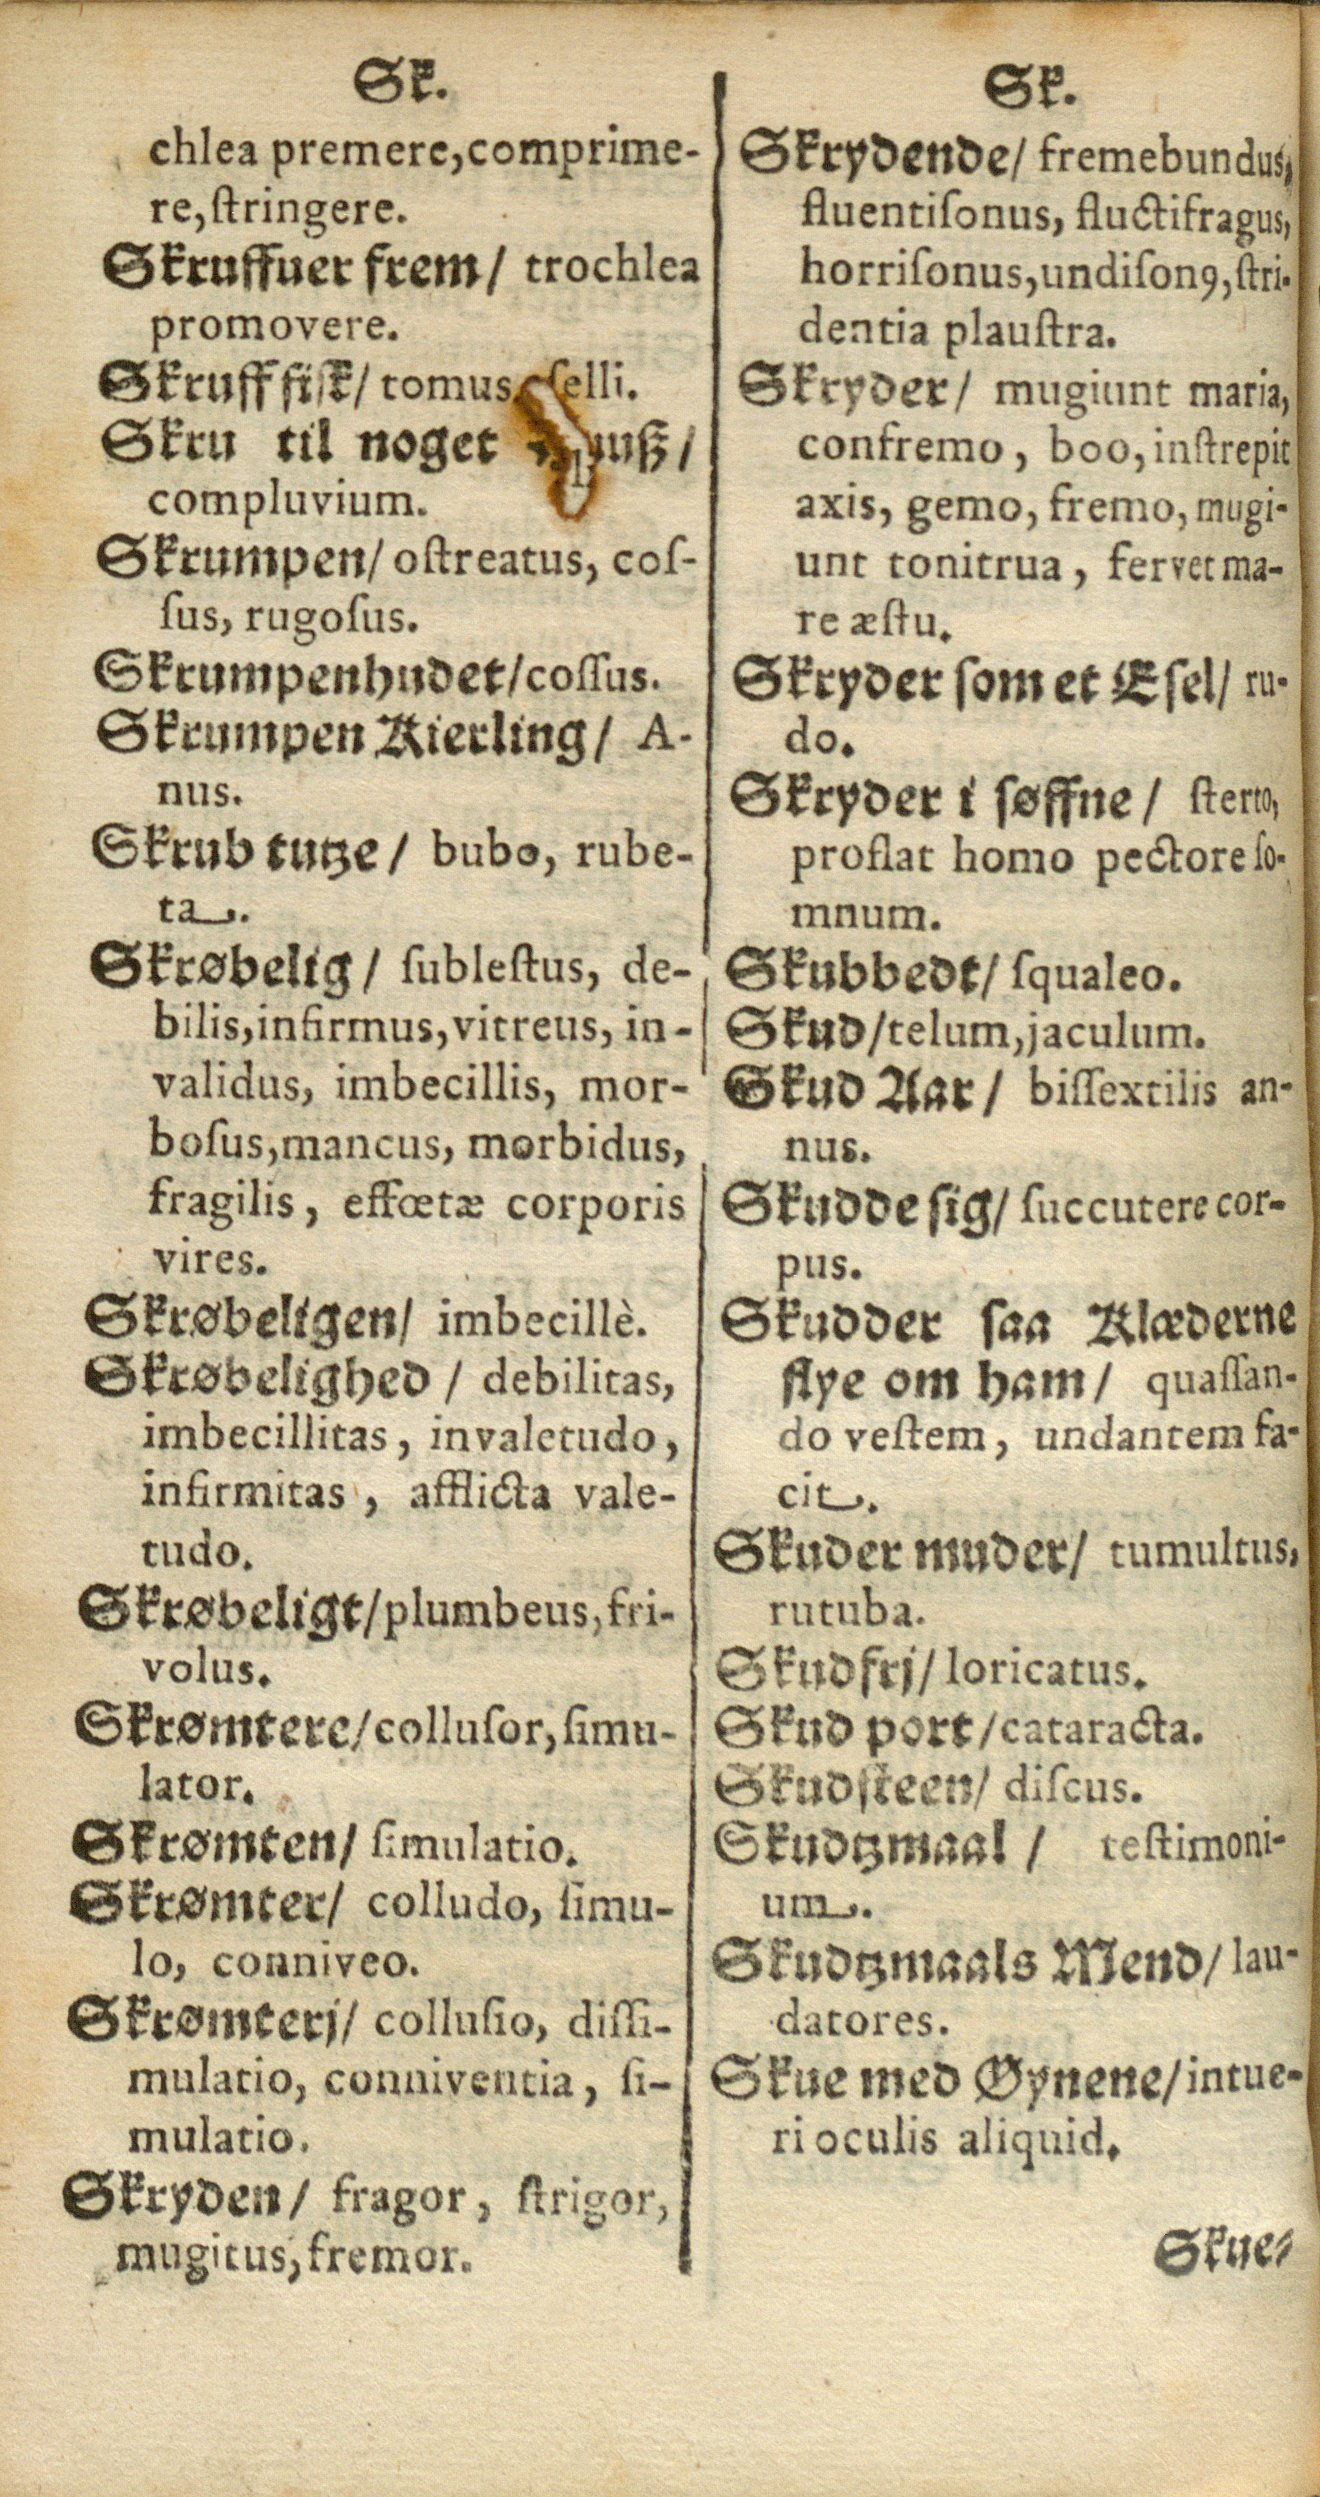 Sk.
chlea premere,comprime-
re,ſtringere.
Skruffuer frem/ trochlea
promovere.
Skruff fiſk/ tomus ſelli.
Skru til noget
compluvium.
Skrumpen/ oſtreatus, coſ-
ſus, rugoſus.
Skrumpenhudet/coſſus.
Skrumpen Kierling/ A-
nus.
Skrub tutze/ bubo, rube-
ta.
Skrøbelig/ ſubleſtus, de-
bilis,infirmus,vitreus, in-
validus, imbecillis, mor-
boſus,mancus, morbidus,
fragilis, effœtæ corporis
vires.
Skrøbeligen/ imbecillè.
Skrøbelighed/ debilitas,
imbecillitas, invaletudo,
infirmitas, afflicta vale-
tudo.
Skrøbeligt/plumbeus,fri-
volus.
Skrømtere/colluſor,ſimu-
lator.
Skrømten/ ſimulatio.
Skrømter/ colludo, ſimu-
lo, conniveo.
Skrømterj/ colluſio, diſſi-
mulatio, conniventia, ſi-
mulatio.
Skryden/ fragor, ſtrigor,
mugitus,fremor.
Sk.
Skrydende/ fremebundus,
fluentiſonus, fluctifragus,
horriſonus,undiſonꝰ,ſtri-
dentia plauſtra.
Skryder/ mugiunt maria,
confremo, boo, inſtrepit
axis, gemo, fremo, mugi-
unt tonitrua, fervet ma-
re æſtu.
Skryder ſom et Eſel/ ru-
do.
Skryder i ſøffne/ ſterto,
proflat homo pectore ſo-
mnum.
Skubbedt/ ſqualeo.
Skud/telum,jaculum.
Skud Aar/ biſſextilis an-
nus.
Skudde ſig/ ſuccutere cor-
pus.
Skudder ſaa Klæderne
flye om ham/ quaſſan-
do veſtem, undantem fa-
cit.
Skuder muder/ tumultus,
rutuba.
Skudfrj/ loricatus.
Skud port/cataracta.
Skudſteen/ diſcus.
Skudtzmaal/ teſtimoni-
um.
Skudtzmaals Mend/ lau-
datores.
Skue med Øynene/intue-
ri oculis aliquid.
Skue-